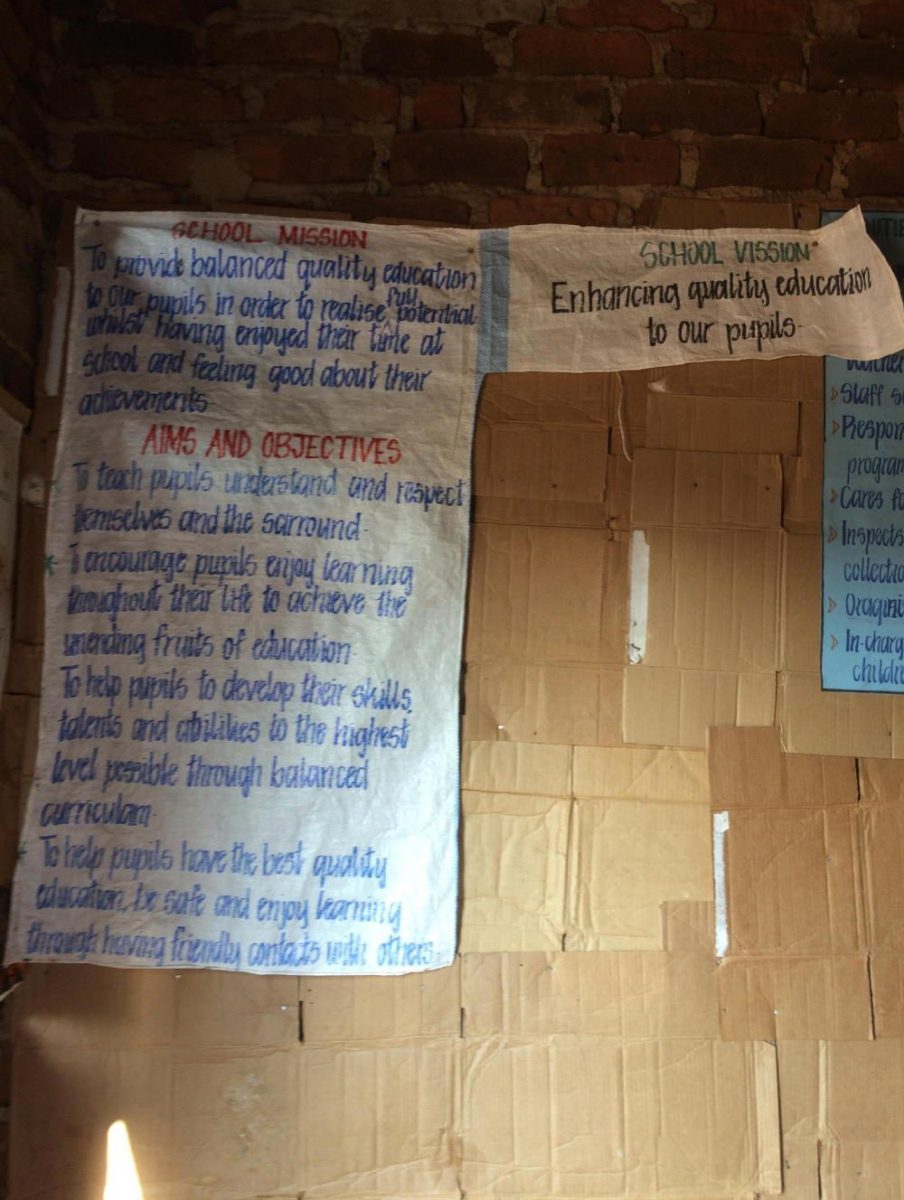 SCHOOL MISSION
To provide balanced quality education
to our pupils in order to realise full potential
whilst having enjoyed their time at
school and feeling good about their
achievements.
AIMS AND OBJECTIVES
To teach pupils understand and respect
themselves and the sarround.
To encourage pupils enjoy learning
throughout their life to achieve the
unending fruits of education.
To help pupils to develop their skills,
talents and abilities to the highest
level possible through balanced
curriculam.
To help pupils have the best quality
education, be safe and enjoy learning
through having friendly contacts with others.
SCHOOL VISSION
Enhancing quality education
to our pupils.
Staff
Respon
program
Cares fo
Inspects
collectio
Oraganiz
In-charg
childre